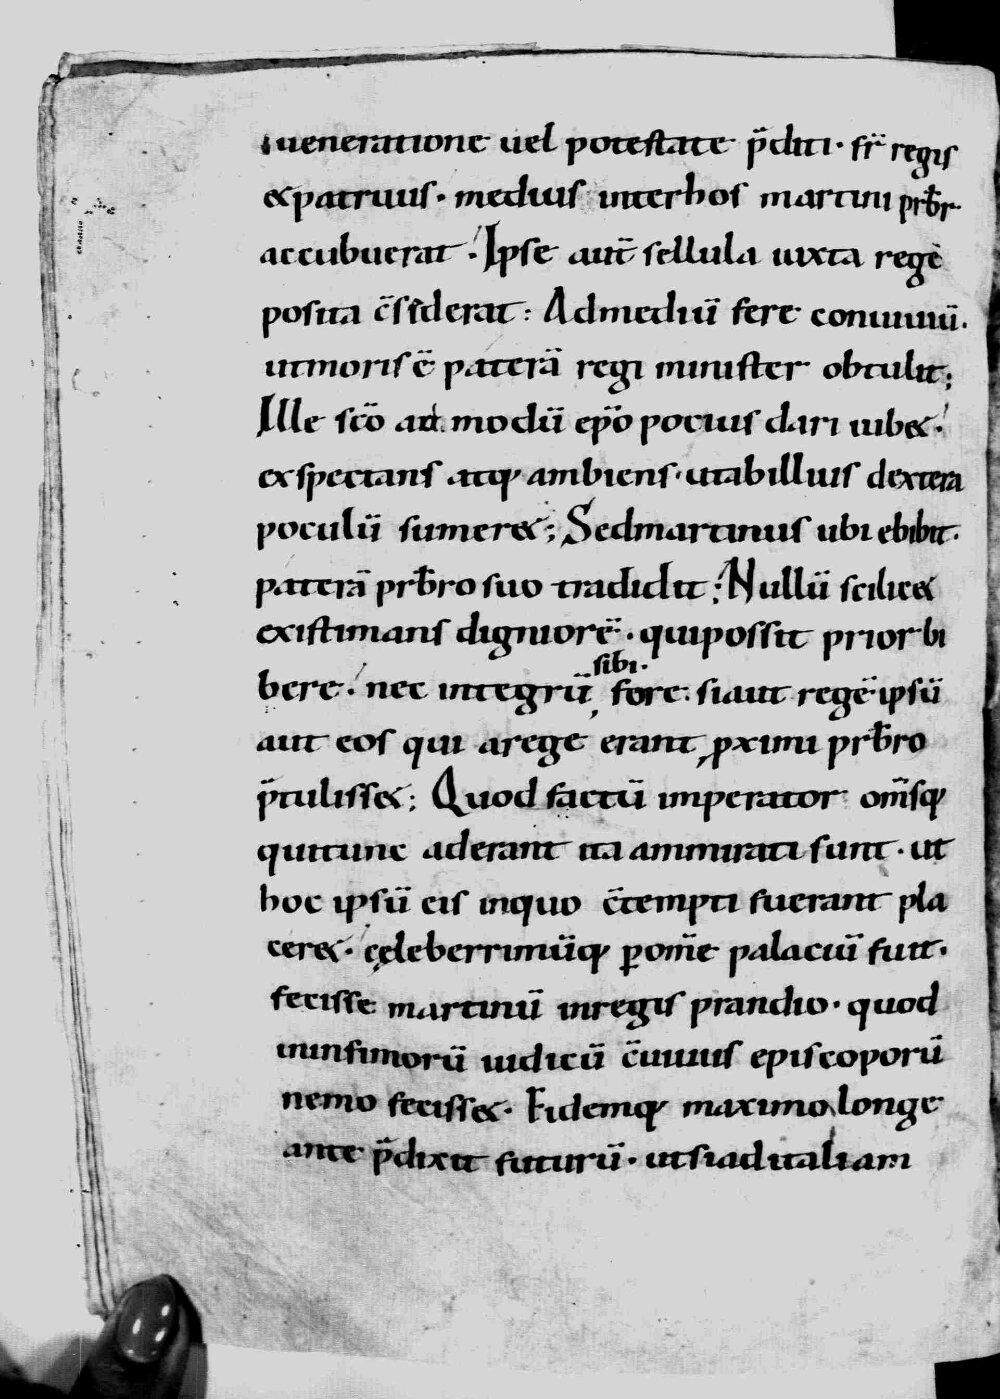 ueneratione uel potestate p̄diti · fr̄ regis
&patruus · medius inter hos martini prƀr ·
accubuerat · Ipse aut̄ sellula iuxta regē
posita c̄siderat : Admediū fere conuiuiū ·
utmoris ē paterā regi minister obtulit ;
Ille sc̄o admodū ep̄o potius dari iub& ·
exspectans atq; ambiens · utabillius dextera
poculū sumer& ; Sedmartinus ubi ebibit ·
paterā prƀro suo tradidit ; Nullū scilic&
existimans digniorē · quipossit prior bi
bere · nec integrū sibi · fore · siaut regē ipsū
aut eos qui arege erant proximi prƀro
p̄tuliss& ; Quod factū imperator om̄sq;
quitunc aderant ita ammirati sunt · ut
hoc ipsū eis inquo c̄tempti fuerant pla
cer& · celeberrimūq; ꝑom̄e palaciū fuit ·
fecisse martinū inregis prandio · quod
ininfimorū iudicū c̄uiuiis episcoporū
nemo feciss& · Eidemq; maximo longe
ante p̄dixit futurū · utsiaditaliam